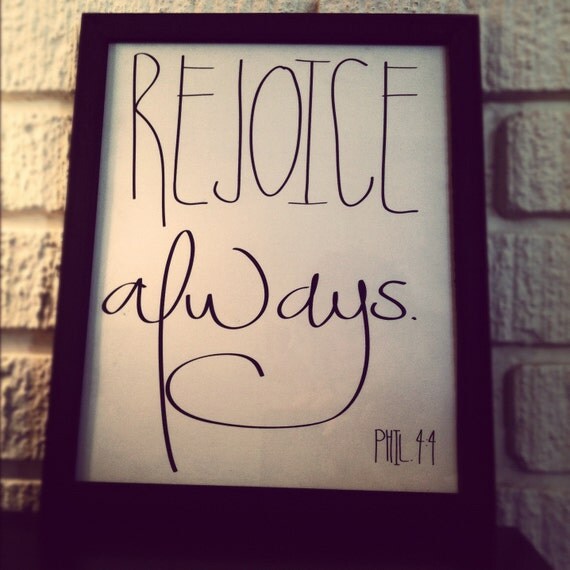 REJOICE
always.
PHIL. 4:4